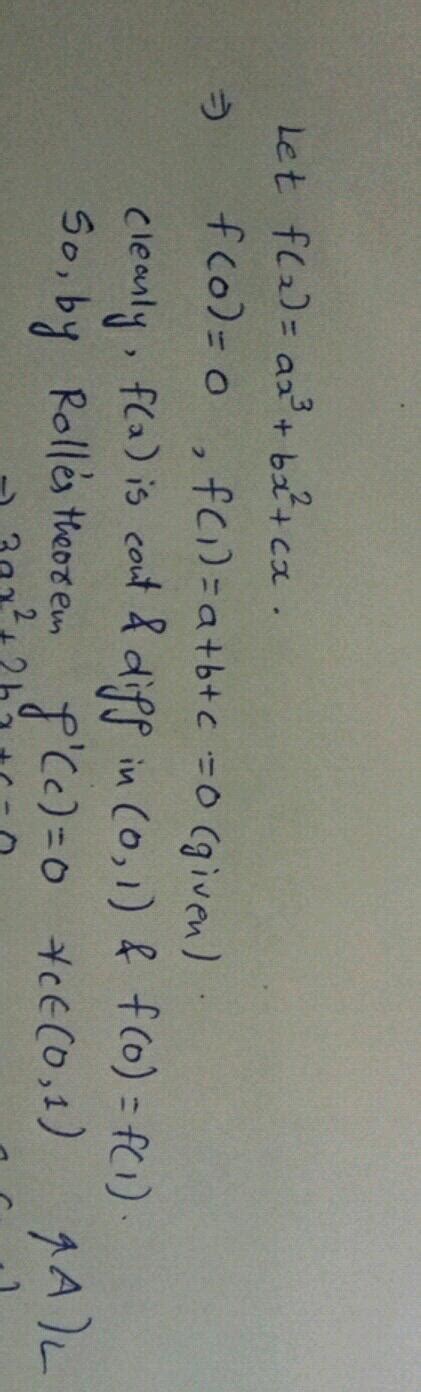 Let f(x) = ax³ + bx² + cx .
⇒ f(0) = 0 , f(1) = a+b+c = 0 (given) .
clearly, f(x) is cont & diff in (0,1) & f(0) = f(1) .
So, by Rolle's theorem f'(c) = 0 ∀c∈(0,1)
⇒ 3ax² + 2bx + c = 0